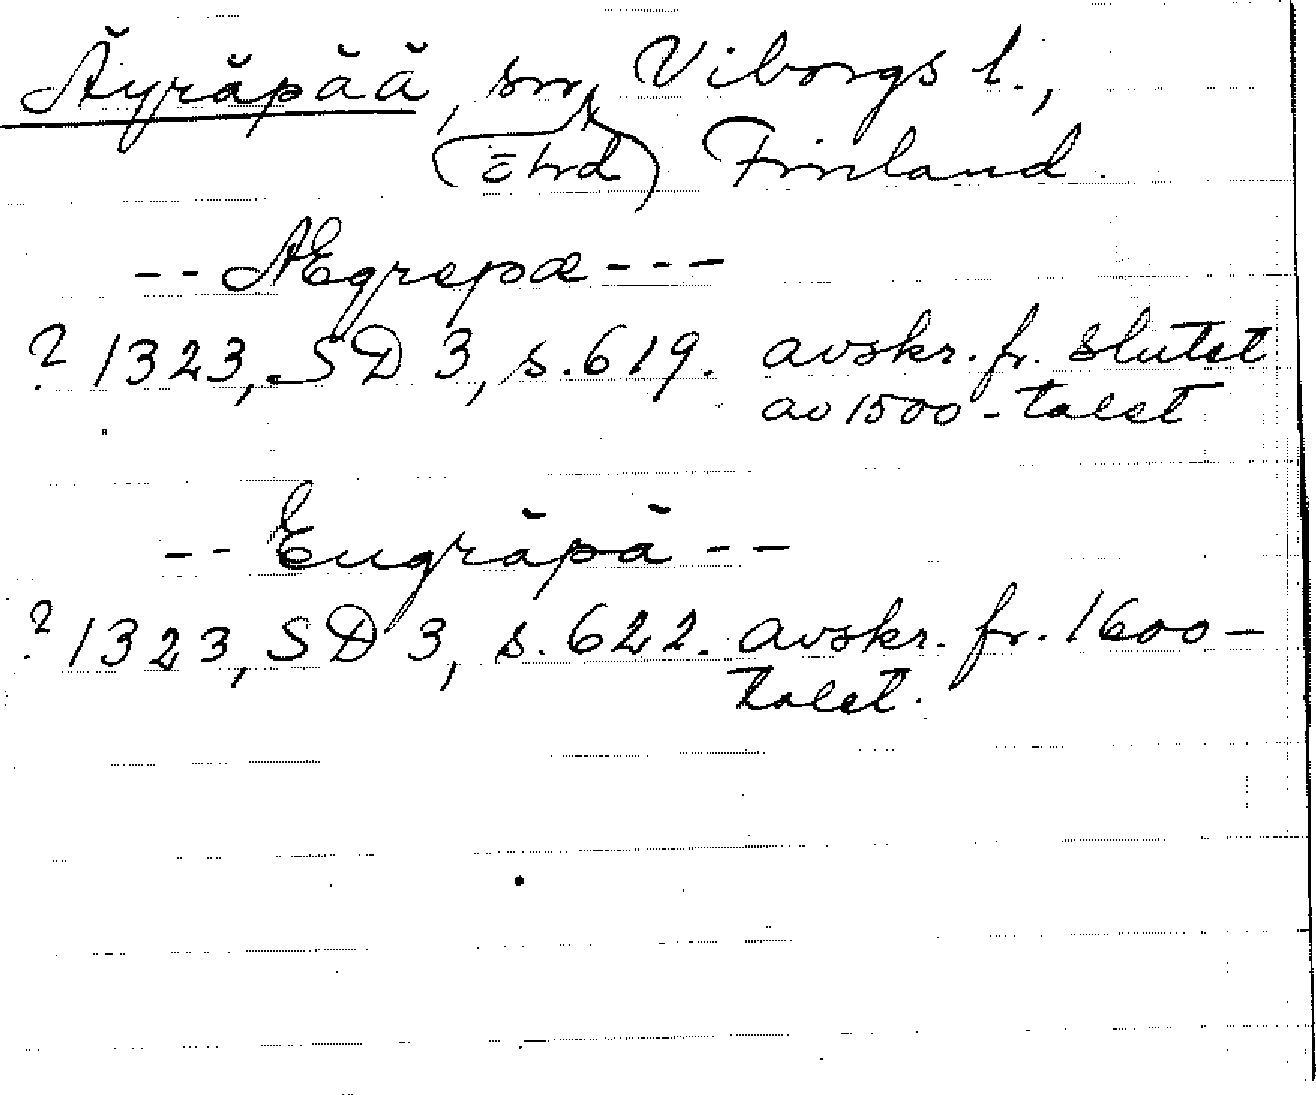 Äyräpää, sn, Viborgs l.,
(= hd) Finland.
-- ÆEgrepæ ---
? 1323, SD 3, s. 619. avskr. fr. slutet
av 1500-talet
-- Eugräpä --
? 1323, SD 3, s. 622. avskr. fr. 1600-
talet.